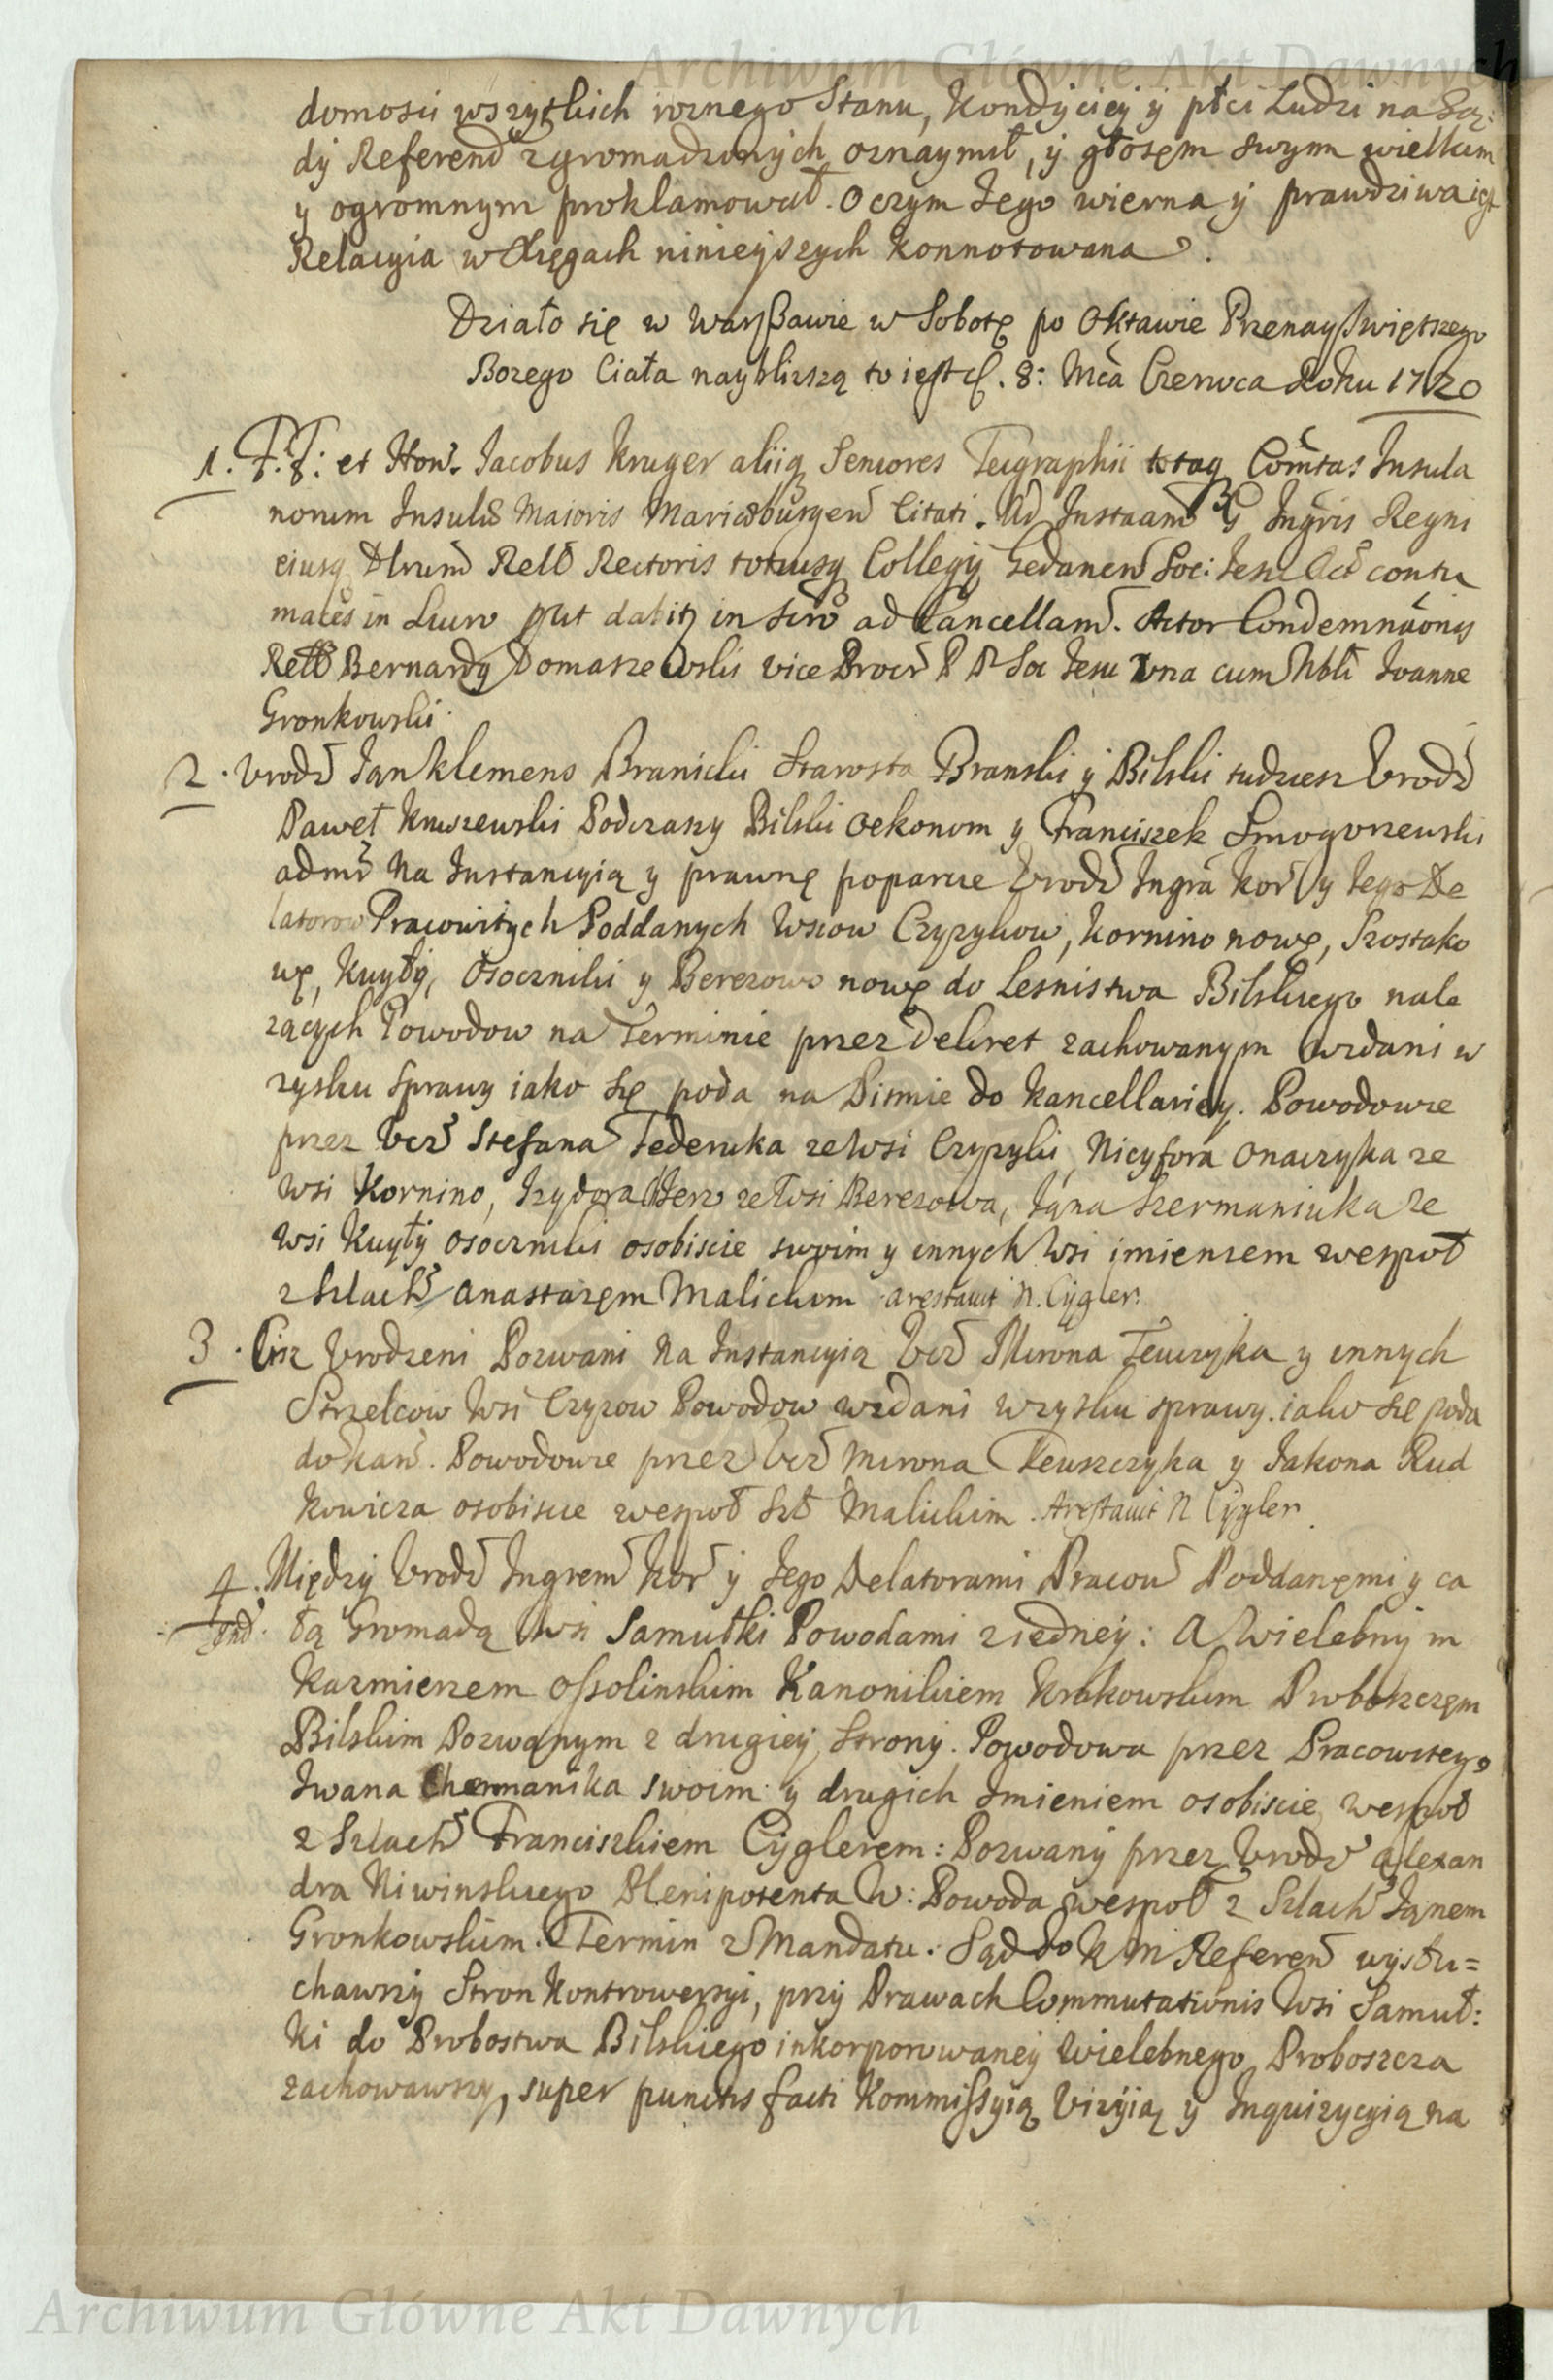 Archiwum Główne Akt Dawnych
domosci wszytkich roznego Stanu, Kondyciey y płci Ludzi na Są:
dy Referend zgromadzonych oznaymił, y głosęm swym wielkim
y ogromnym proklamował. O czym Jego wierna y prawdziwa iest
Relacyia w Xięgach ninieyszych konnotowana.
Działo się w Warszawie w Sobotę po Oktawie Przenayswiętszego
Bozego Ciała naybliszszą to iest d. 8: Mca Czerwca Roku 1720
1. F.F: et Hon. Jacobus Kruger aliiq Seniores Teigraphii totaq Comtas Insula
norum Insulæ Maioris Mariæburgen Citati. Ad Instaam G Ingris Regni
eiusq Dlrum Rell Rectoris totiusq Collegij Gedanen Soc: Jesu Act contu
maces in Lucro put dabitq in scro ad Cancellam. Actor Condemnaonis
Rell Bernardg Domaszewski vice Procr P P Soc Jesu Vna cum Nbli Joanne
Gronkowski.
2. Vrodz Jan klemens Branicki Starosta Branski y Bilski tudziesz Vrodz
Paweł Kruszewski Podczaszy Bilski Oekonom y Franciszek Smogorzewski
admr Na Instancyią y prawnę poparcie Vrodz Ingra Kor y Jego De
latorow Pracowitych Poddanych Wsiow Czyzykow, Kornino nowę, Szostako
wę, Kuyły, Osoczniki y Berezowo nowę do Lesnistwa Bilskiego nale
zących Powodow na Terminie przez Dekret zachowanym wzdani w
zysku sprawy iako się poda na Pismie do kancellariey. Powodowie
przez Ucz Stefana Federuka ze Wsi Czyzyki, Nicyfora Onaczyka ze
Wsi Kornino, Izydora Jerz ze Wsi Berezowa, Jána Szermaniuka ze
Wsi Kuyły Osoczniki osobiscie swoim y innych Wsi imieniem wespoł
z Szlach Anastazęm Malickim arestavit N. Cygler.
3. Ciz Vrodzeni Pozwani Na Instancyią Ucz Mirona Teuczyka y innych
Strzelcow Wsi Czyzow Powodow wzdani w zysku sprawy. iako się poda
do kan. Powodowie przez Ucz Mirona Teuszczyka y Jakona Rud
kowicza osobiscie wespoł Szl Malickim. Arestavit N Cygler.
4. Między Vrodz Ingrem Kor y Jego Delatorami Pracow Poddanęmi y ca
łą Gromadą Wsi Samułki Powodami z iedney: A Wielebnym
Kazmierzem Ossolinskim Kanonikiem Krakowskim Proboszczęm
Bilskim Pozwanym z drugiey Strony. Powodowa przez Pracowitego
Iwana Chermanika swoim y drugich Imieniem osobiscie wespoł
z Szlach Franciszkiem Cyglerem: Pozwany przez Vrodz Alexan
dra Niwinskiego Plenipotenta W: Powoda wespoł z Szlach Janem
Gronkowskim. Termin z Mandatu. Sąd Jo K M Referen wysłu=
chawszy Stron Kontrowersyi, przy Prawach Commutationis Wsi Samuł:
ki do Probostwa Bilskiego inkorporowaney Wielebnego Proboszcza
zachowawszy, super punctis facti Kommissyią Vizyią y Inquizycyią na
Archiwum Główne Akt Dawnych